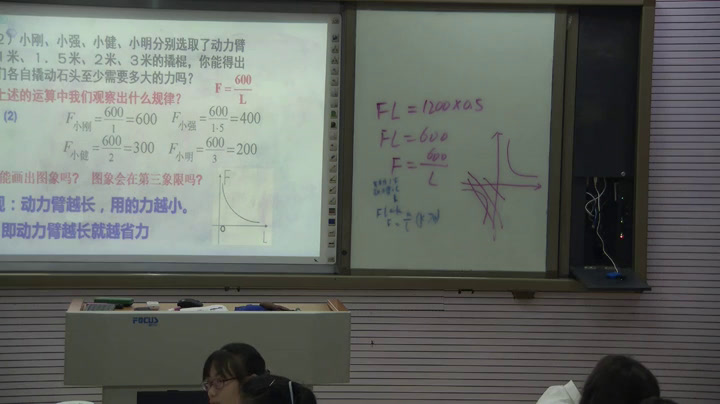 2) 小刚、小强、小健、小明分别选取了动力臂
1米、1.5米、2米、3米的撬棍，你能得出
们各自撬动石头至少需要多大的力吗？
上述的运算中我们观察出什么规律？ F=600/L
(2) F小刚=600/1=600 F小强=600/1·5=400
F小健=600/2=300 F小明=600/3=200
能画出图象吗？ 图象会在第三象限吗？
现：动力臂越长，用的力越小。
即动力臂越长就越省力
F
O
L
FL=1200×0.5
FL=600
F=600/L
FOCUS